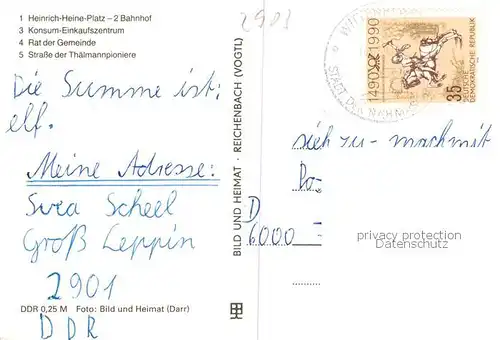 1 Heinrich-Heine-Platz – 2 Bahnhof
3 Konsum-Einkaufszentrum
4 Rat der Gemeinde
5 Straße der Thälmannpioniere
Die Summe ist:
elf.
Meine Adresse:
Svea Scheel
Groß Leppin
2901
DDR 0,25 M Foto: Bild und Heimat (Darr)
DDR
BILD UND HEIMAT · REICHENBACH (VOGTL)
2903
1490 1990
35
DEUTSCHE
DEMOKRATISCHE REPUBLIK
sich zu- machmit
Po-
D
6000
privacy protection
Datenschutz